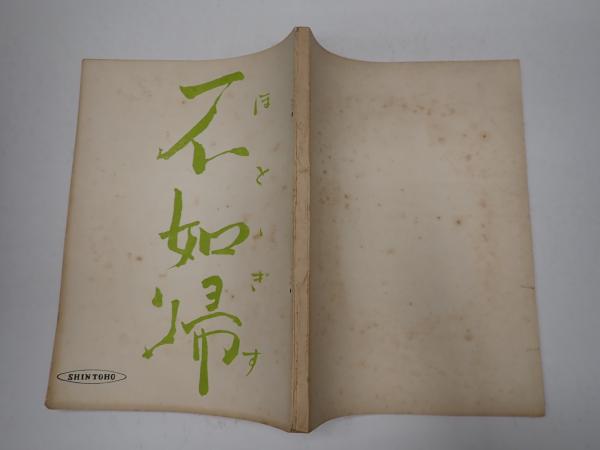 不如帰
ほとゝぎす
SHINTOHO